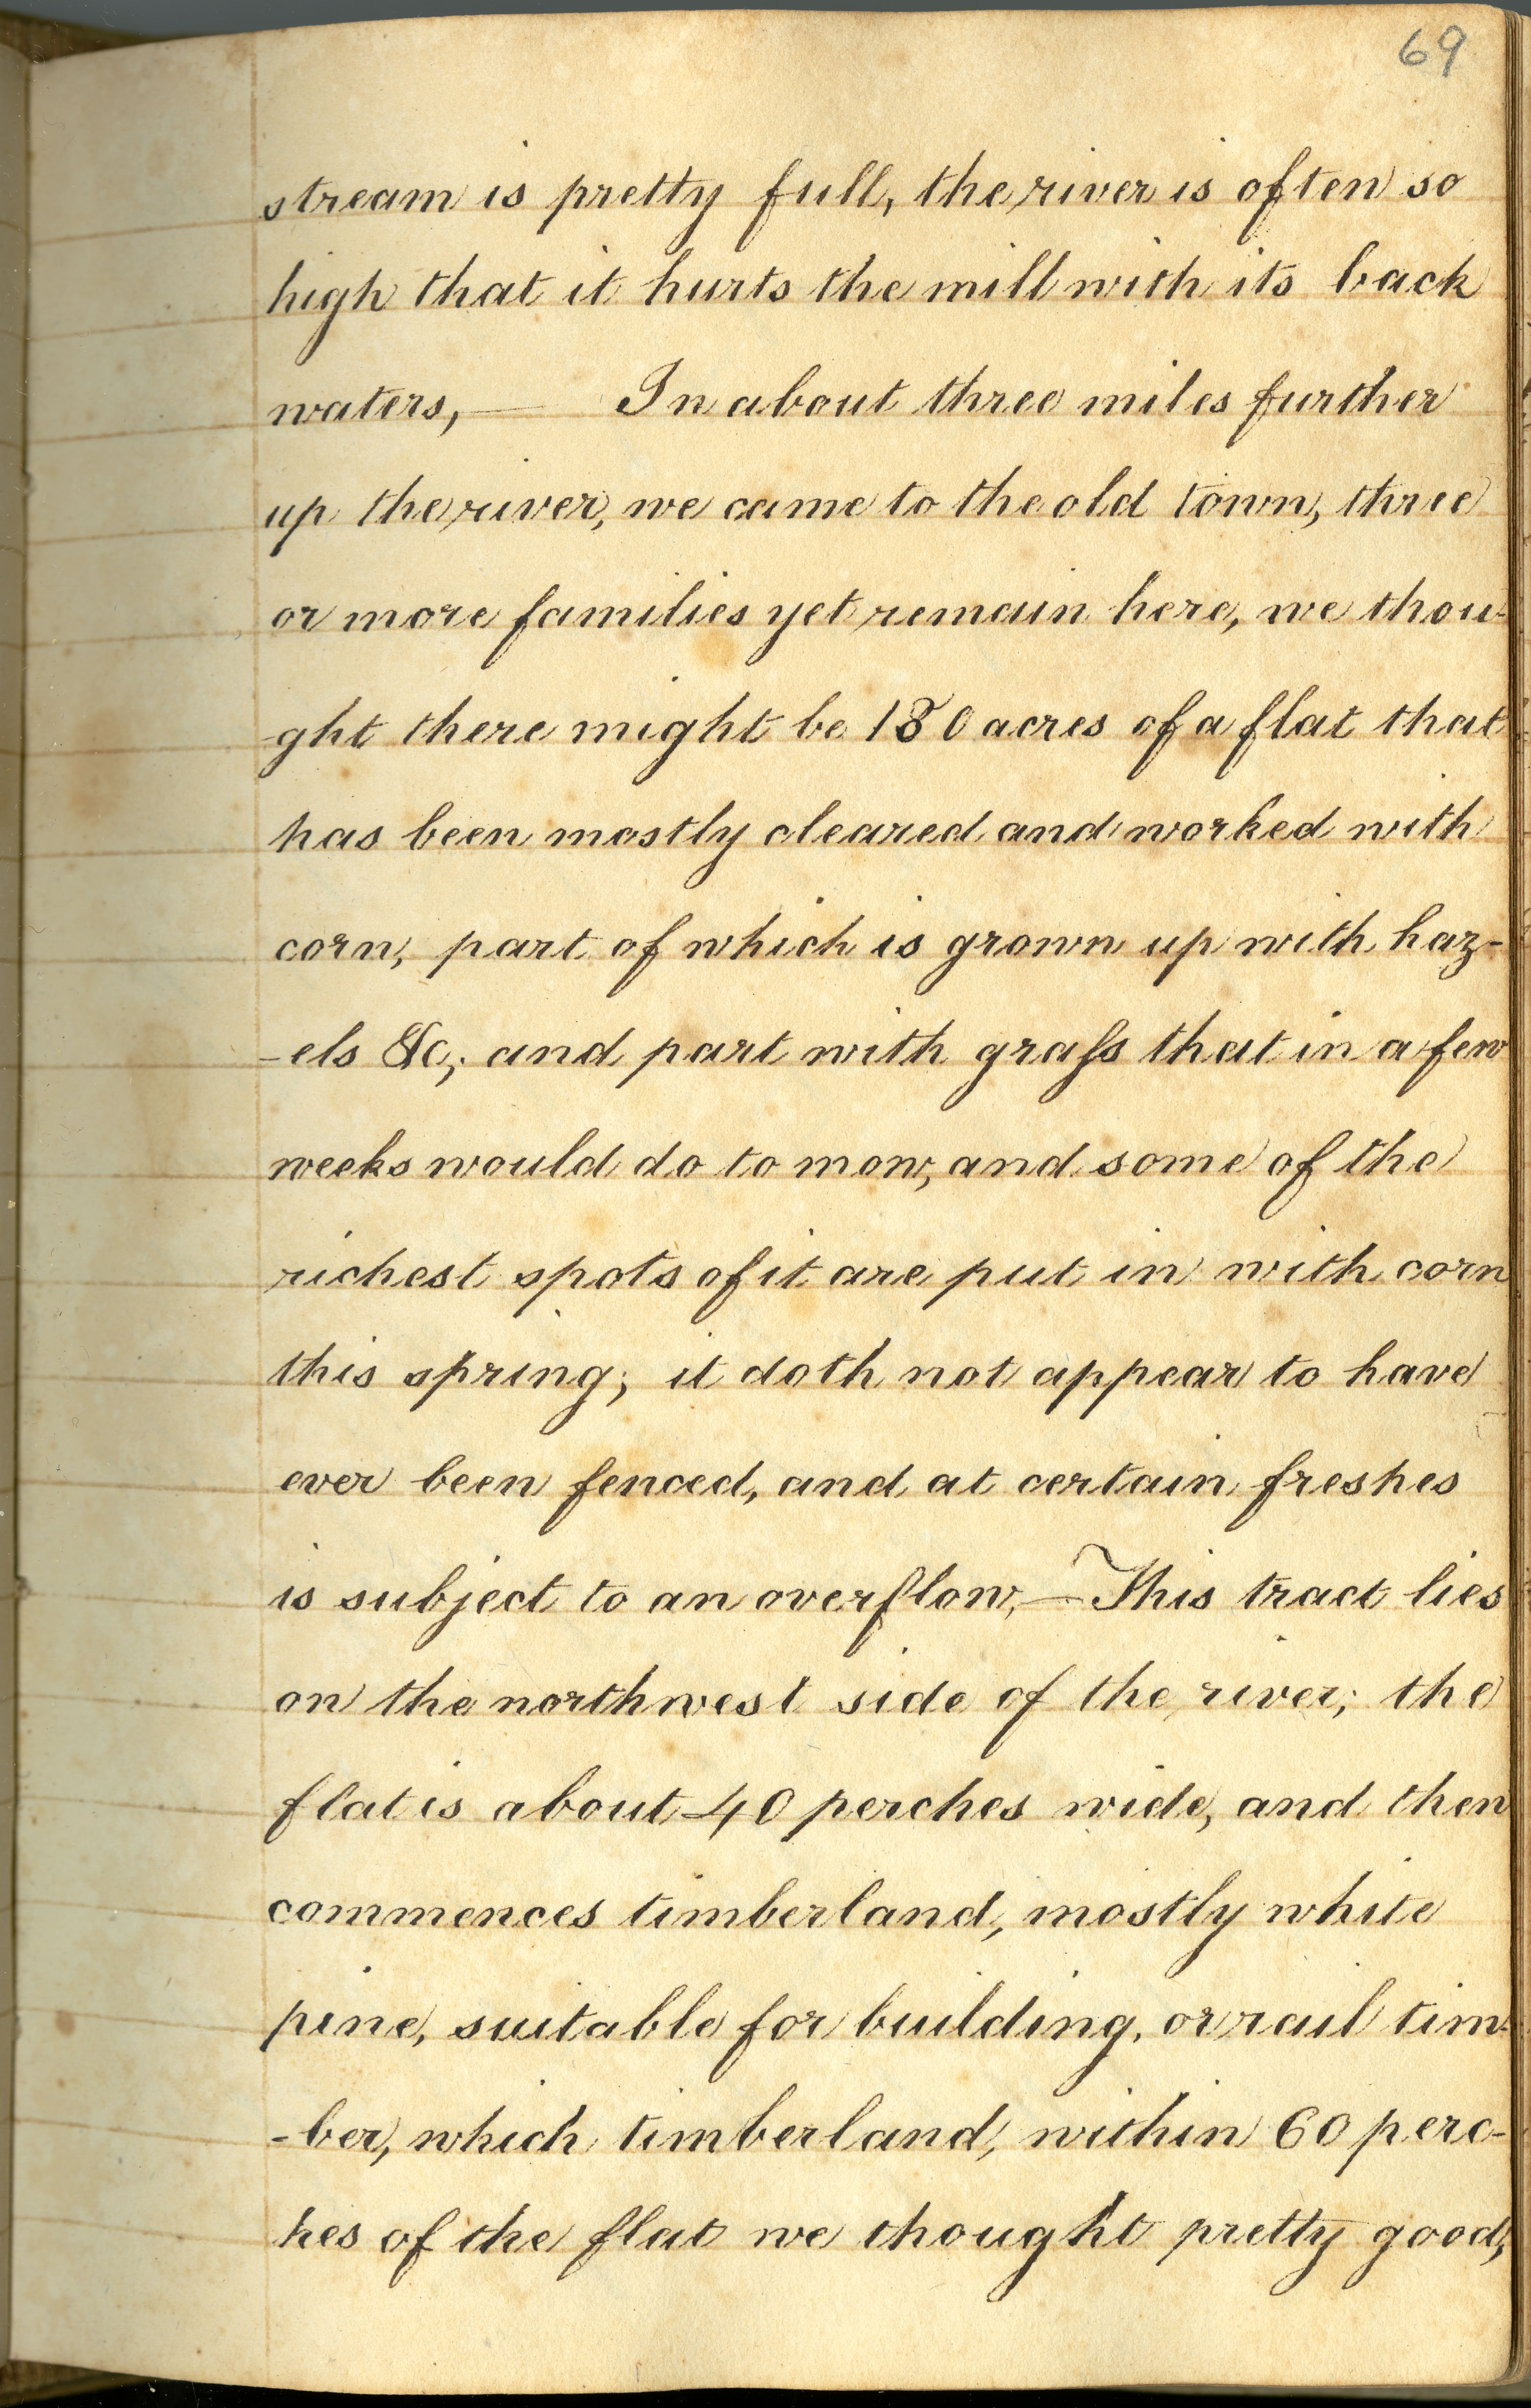 69
stream is pretty full, the river is often so
high that it hurts the mill with its back
waters, — In about three miles further
up the river, we came to the old town, three
or more families yet remain here, we thou-
ght there might be 180 acres of a flat that
has been mostly cleared and worked with
corn, part of which is grown up with haz-
-els &c, and part with grass that in a few
weeks would do to mow, and some of the
richest spots of it are put in with corn
this spring; it doth not appear to have
ever been fenced, and at certain freshes
is subject to an overflow, — This tract lies
on the northwest side of the river; the
flat is about 40 perches wide, and then
commences timberland, mostly white
pine, suitable for building, or rail tim-
-ber, which timberland, within 60 perc-
hes of the flat we thought pretty good,